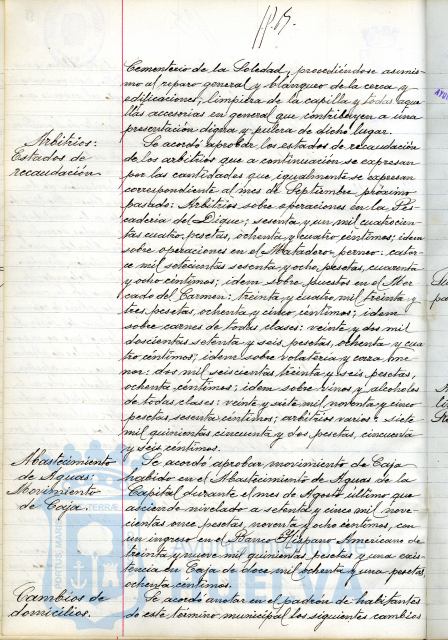 Cementerio de la Soledad, procediéndose asimis-
mo al reparo general y blanqueo de la cerca y
edificaciones, limpieza de la capilla y todas aque-
llas accesorias en general que contribuyen a una
presentación digna y pulcra de dicho lugar.
Arbitrios:
Estados de
recaudación
Se acordó aprobar los estados de recaudación
de los arbitrios que a continuación se expresan
por las cantidades que igualmente se expresan
correspondiente al mes de Septiembre próximo
pasado: Arbitrios sobre operaciones en la Pes-
cadería del Dique; sesenta y un mil cuatrocien-
tas cuatro pesetas, ochenta y cuatro céntimos; idem
sobre operaciones en el Matadero perneo: cator-
ce mil setecientas sesenta y ocho pesetas, cuarenta
y ocho céntimos; idem sobre puestos en el Mer-
cado del Carmen: treinta y cuatro mil treinta y
tres pesetas, ochenta y cinco céntimos; idem
sobre carnes de todas clases: veinte y dos mil
doscientas setenta y seis pesetas, ochenta y cua-
tro céntimos; idem sobre volatería y caza me-
nor: dos mil seiscientas treinta y seis pesetas,
ochenta céntimos; idem sobre vinos y alcoholes
de todas clases: veinte y siete mil noventa y cinco
pesetas sesenta céntimos; arbitrios varios: siete
mil quinientas cincuenta y dos pesetas, cincuenta
y seis céntimos.
Abastecimiento
de Aguas:
Movimiento
de Caja.
Se acordó aprobar movimiento de Caja
habido en el Abastecimiento de Aguas de la
Capital durante el mes de Agosto último que
asciende nivelado a setenta y cinco mil nove-
cientas once pesetas, noventa y ocho céntimos, con
un ingreso en el Banco Hispano Americano de
treinta y nueve mil quinientas pesetas y una exis-
tencia en Caja de doce mil ochenta y una pesetas,
ochenta céntimos.
Cambios de
domicilios.
Se acordó anotar en el padrón de habitantes
de este término municipal los siguientes cambios